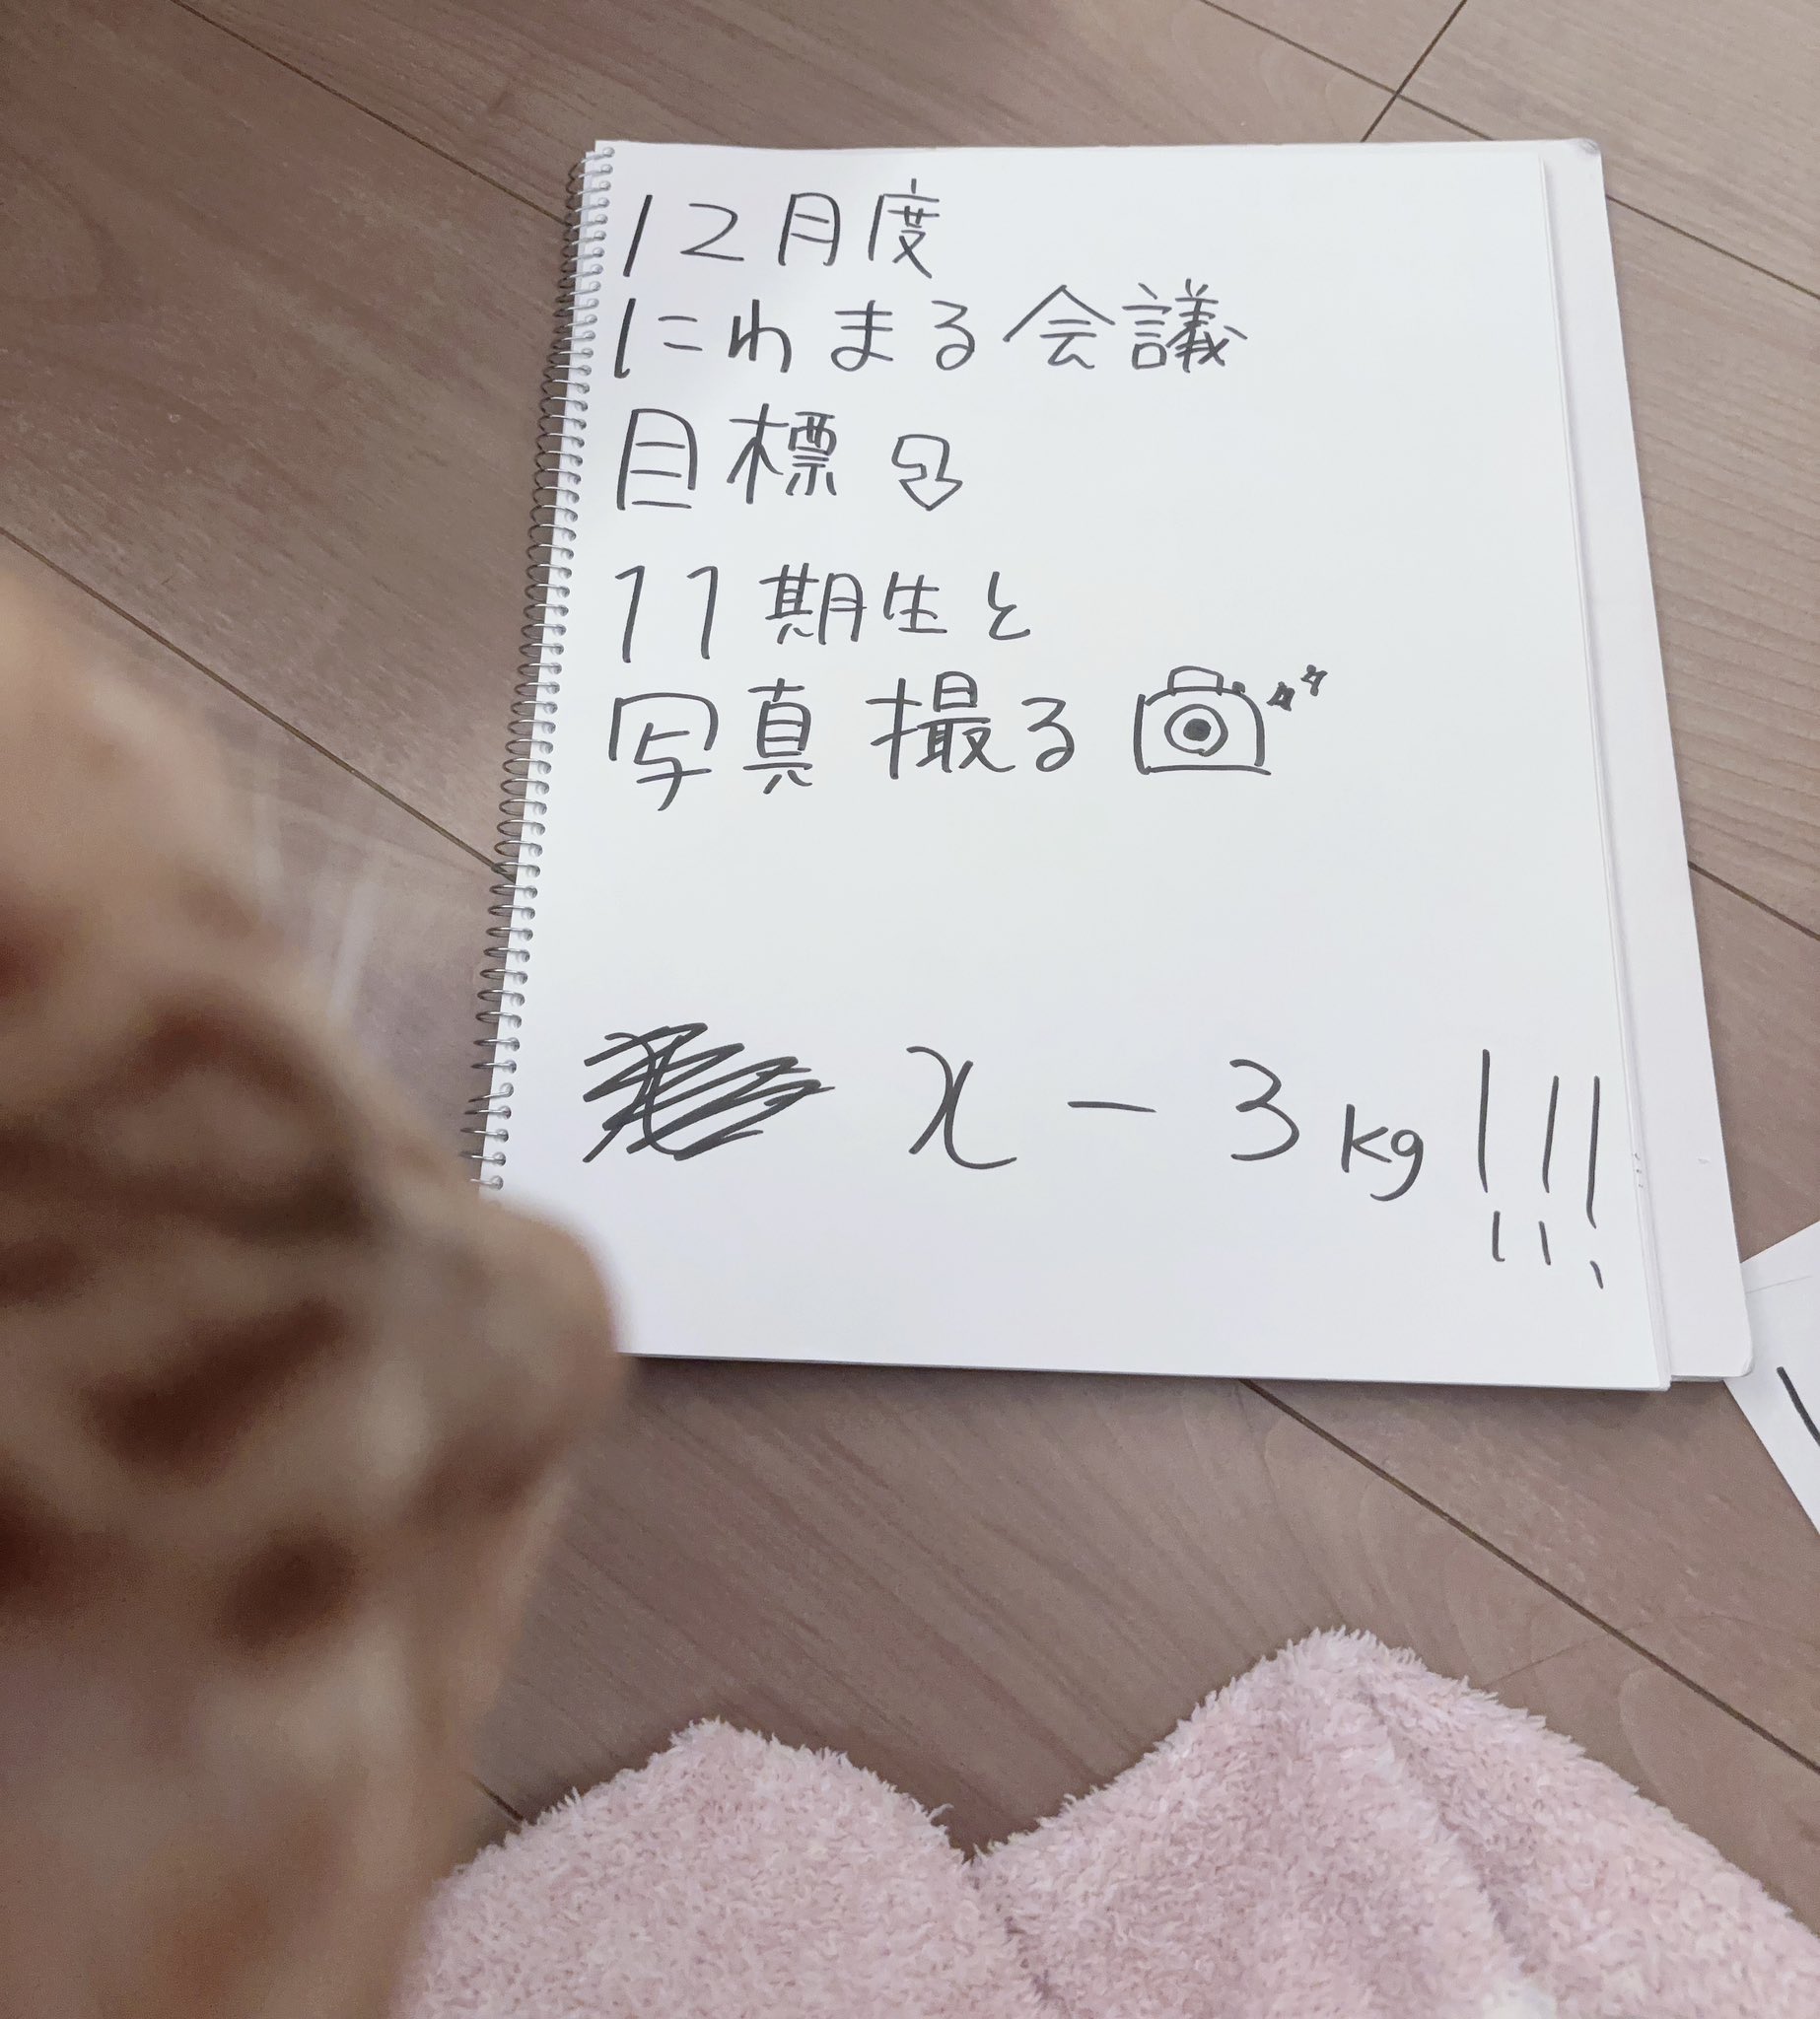 12月度
にわまる会議
目標
11期生と
写真撮る
x - 3kg!!!